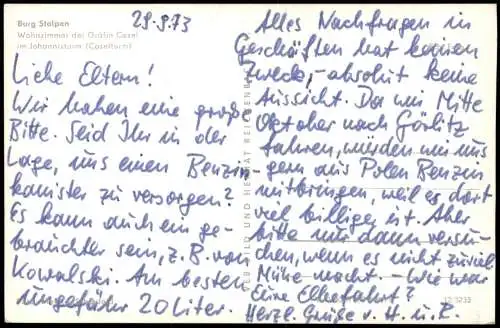 Burg Stolpen
Wohnzimmer der Gräfin Cosel
im Johannisturm (Coselturm)
29.9.73
Liebe Eltern!
Wir haben eine große
Bitte. Seid Ihr in der
Lage, uns einen Benzin-
kanister zu versorgen?
Es kann auch ein ge-
brauchter sein, z.B. von
Kowalski. Am besten
ungefähr 20 Liter.
Alles Nachfragen in
Geschäften hat keinen
Zweck, absolut keine
Aussicht. Da wir Mitte
Oktober nach Görlitz
fahren, würden wir uns
gern aus Polen Benzin
mitbringen, weil es dort
viel billiger ist. Aber
bitte nur dann versu-
chen, wenn es nicht zuviel
Mühe macht. – Wie war
Eure Elbefahrt?
Herzl. Grüße v. H. u. E.
VEB BILD UND HEIMAT REICHENBACH